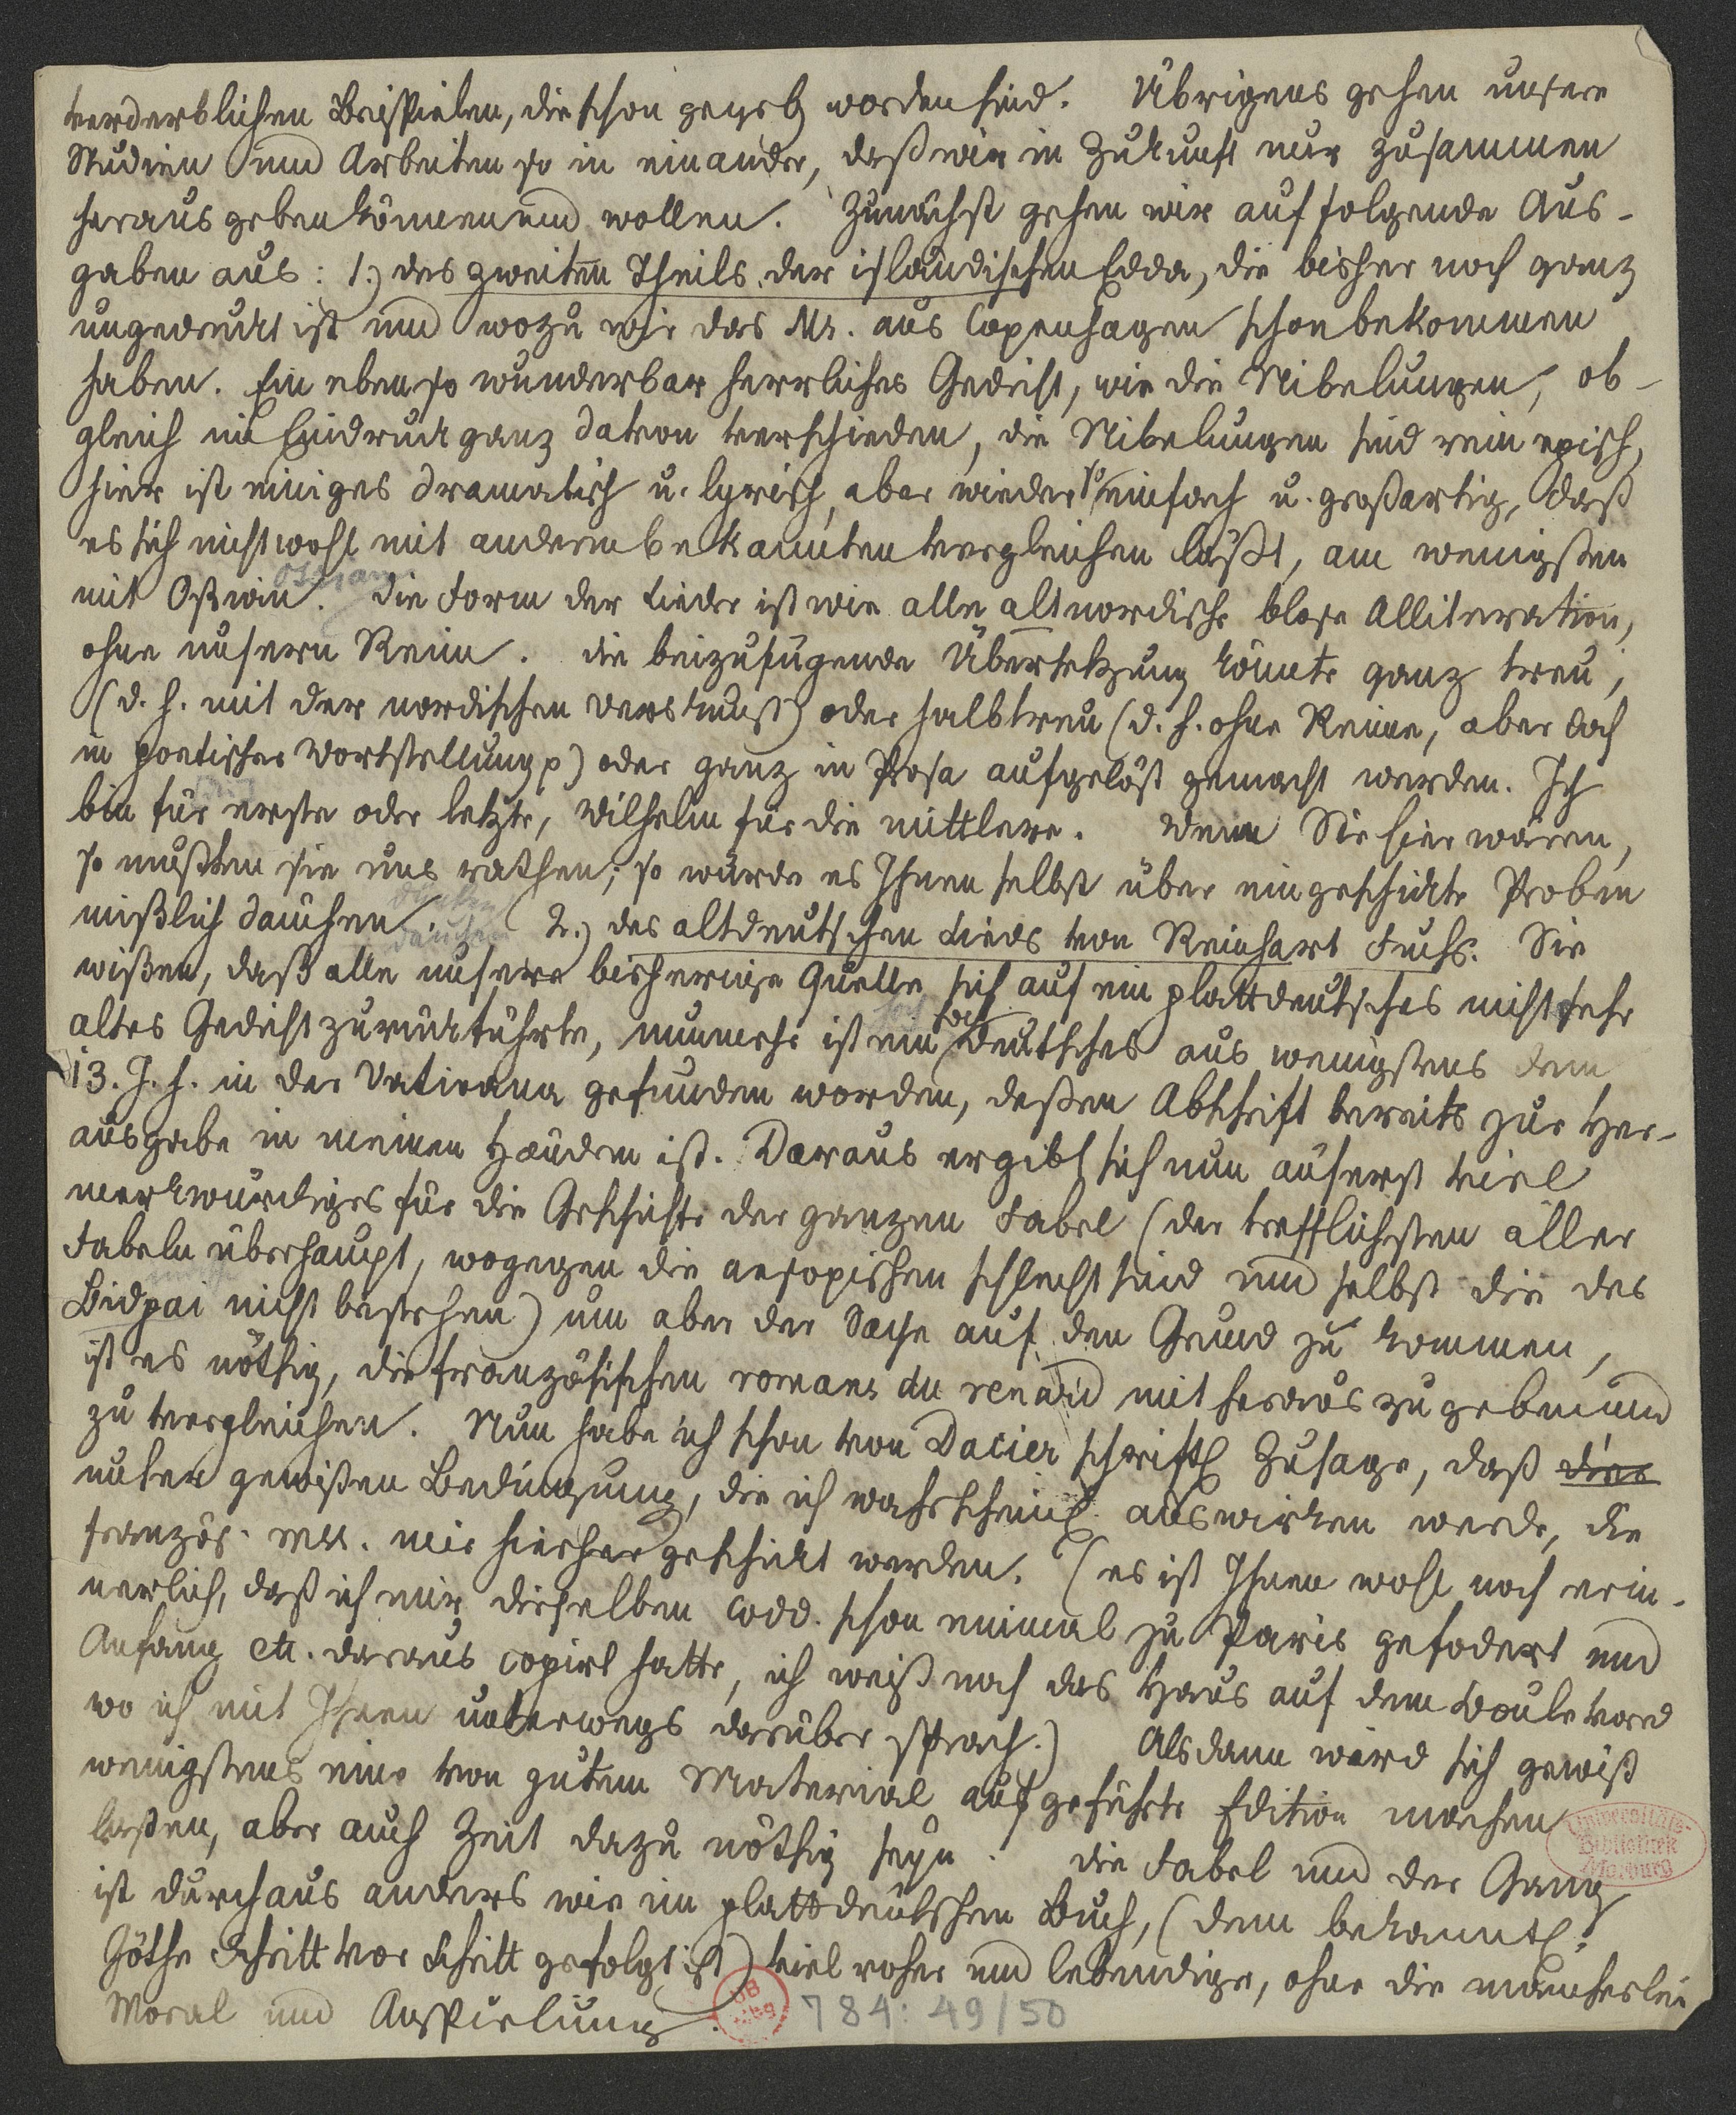 verderblichen Beispielen, die schon gegeb. worden sind. Übrigens gehen unsere
Studien und Arbeiten so in einander, daß wir in Zukunft nur zusammen
heraus geben können und wollen. Zunächst gehen wir auf folgende Aus-
gaben aus: 1.) des zweiten Theils der isländischen Edda, die bisher noch ganz
ungedruckt ist und wozu wir das Ms. aus Copenhagen schon bekommen
haben. Ein eben so wunderbar herrliches Gedicht, wie die Nibelungen, ob-
gleich im Eindruck ganz davon verschieden, die Nibelungen sind rein episch,
hier ist einiges dramatisch u. lyrisch, aber wieder so einfach u. großartig, daß
es sich nicht wohl mit anderm bekannten vergleichen läßt, am wenigsten
ossian
mit Oßwin. Die Form der Lieder ist wie alle altnordische blose Alliteration,
ohne unsern Reim. die beizufügende Übersetzung könnte ganz treu,
(d. h. mit der nordischen Verskunst) oder halbtreu (d. h. ohne Reime, aber doch
in poetischer Wortstellung p) oder ganz in Prosa aufgelöst gemacht werden. Ich
bin für erste oder letzte, Wilhelm für die mittlere. Wenn Sie hier wären,
so müßten sie uns rathen; so würde es Ihnen selbst über eingeschickte Proben
däuchen
mißlich däuchen. 2.) des altdeutschen Lieds von Reinhart Fuchs. Sie
wißen, daß alle unsere bisherige Quelle sich auf ein plattdeutsches nicht sehr
altes Gedicht zurückführte, nunmehr ist ein hochdeutsches aus wenigstens dem
13. J. h. in der Vaticana gefunden worden, deßen Abschrift bereits zur Her-
ausgabe in meinen Händen ist. Daraus ergibt sich nun äuserst viel
merkwürdiges für die Geschichte der ganzen Fabel (der trefflichsten aller
Fabeln überhaupt, wogegen die aesopischen schlecht sind und selbst die des
Bidpai nicht bestehen) um aber der Sache auf den Grund zu kommen,
ist es nöthig, die französischen romans du renard mit heraus zu geben und
zu vergleichen. Nun habe ich schon von Dacier schriftl. Zusage, daß dies
unter gewißen Bedingung, die ich wahrscheinl. auswirken werde, die
französ. mss. mir hierher geschickt werden. (es ist Ihnen wohl noch erin-
nerlich, daß ich mir dieselben codd. schon einmal zu Paris gefodert und
Anfang etc. daraus copirt hatte, ich weiß noch das Haus auf dem Boulevard
wo ich mit Ihnen unterwegs darüber sprach.) Alsdann wird sich gewiß
wenigstens eine von gutem Material aufgeführte Edition machen
laßen, aber auch Zeit dazu nöthig seyn. die Fabel und der Gang
ist durchaus anders wie im plattdeutschen Buch, (dem bekanntl.
Göthe Schritt vor Schritt gefolgt ist) viel roher und lebendiger, ohne die mancherlei
Moral und Anspielung.
784: 49/50
Universitäts-
Bibliothek
Marburg
UB
Mbg